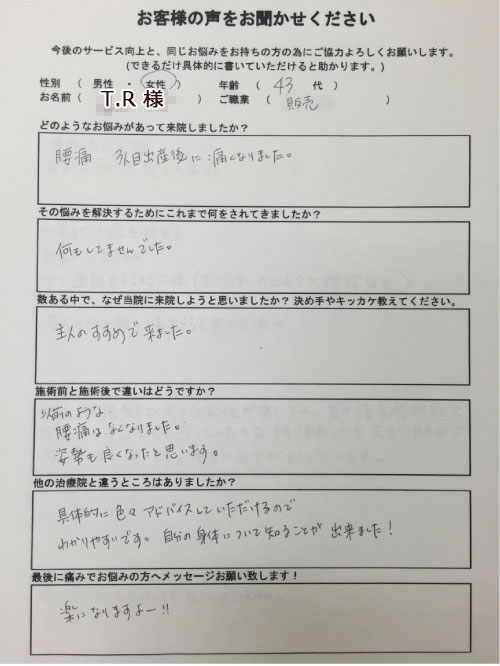 お客様の声をお聞かせください
今後のサービス向上と、同じお悩みをお持ちの方の為にご協力よろしくお願いします。
(できるだけ具体的に書いていただけると助かります。)
性別 ( 男性 ・ 女性 ) 年齢 ( 43 代 )
お名前 ( T.R 様 ) ご職業 ( 販売 )
どのようなお悩みがあって来院しましたか?
腰痛 3人目出産後に痛くなりました。
その悩みを解決するためにこれまで何をされてきましたか?
何もしてませんでした。
数ある中で、なぜ当院に来院しようと思いましたか? 決め手やキッカケ教えてください。
主人のすすめで来ました。
施術前と施術後で違いはどうですか?
以前のような
腰痛はなくなりました。
姿勢も良くなったと思います。
他の治療院と違うところはありましたか?
具体的に色々アドバイスしていただけるので
わかりやすいです。自分の身体について知ることが出来ました!
最後に痛みでお悩みの方へメッセージお願い致します!
楽になりますよー!!